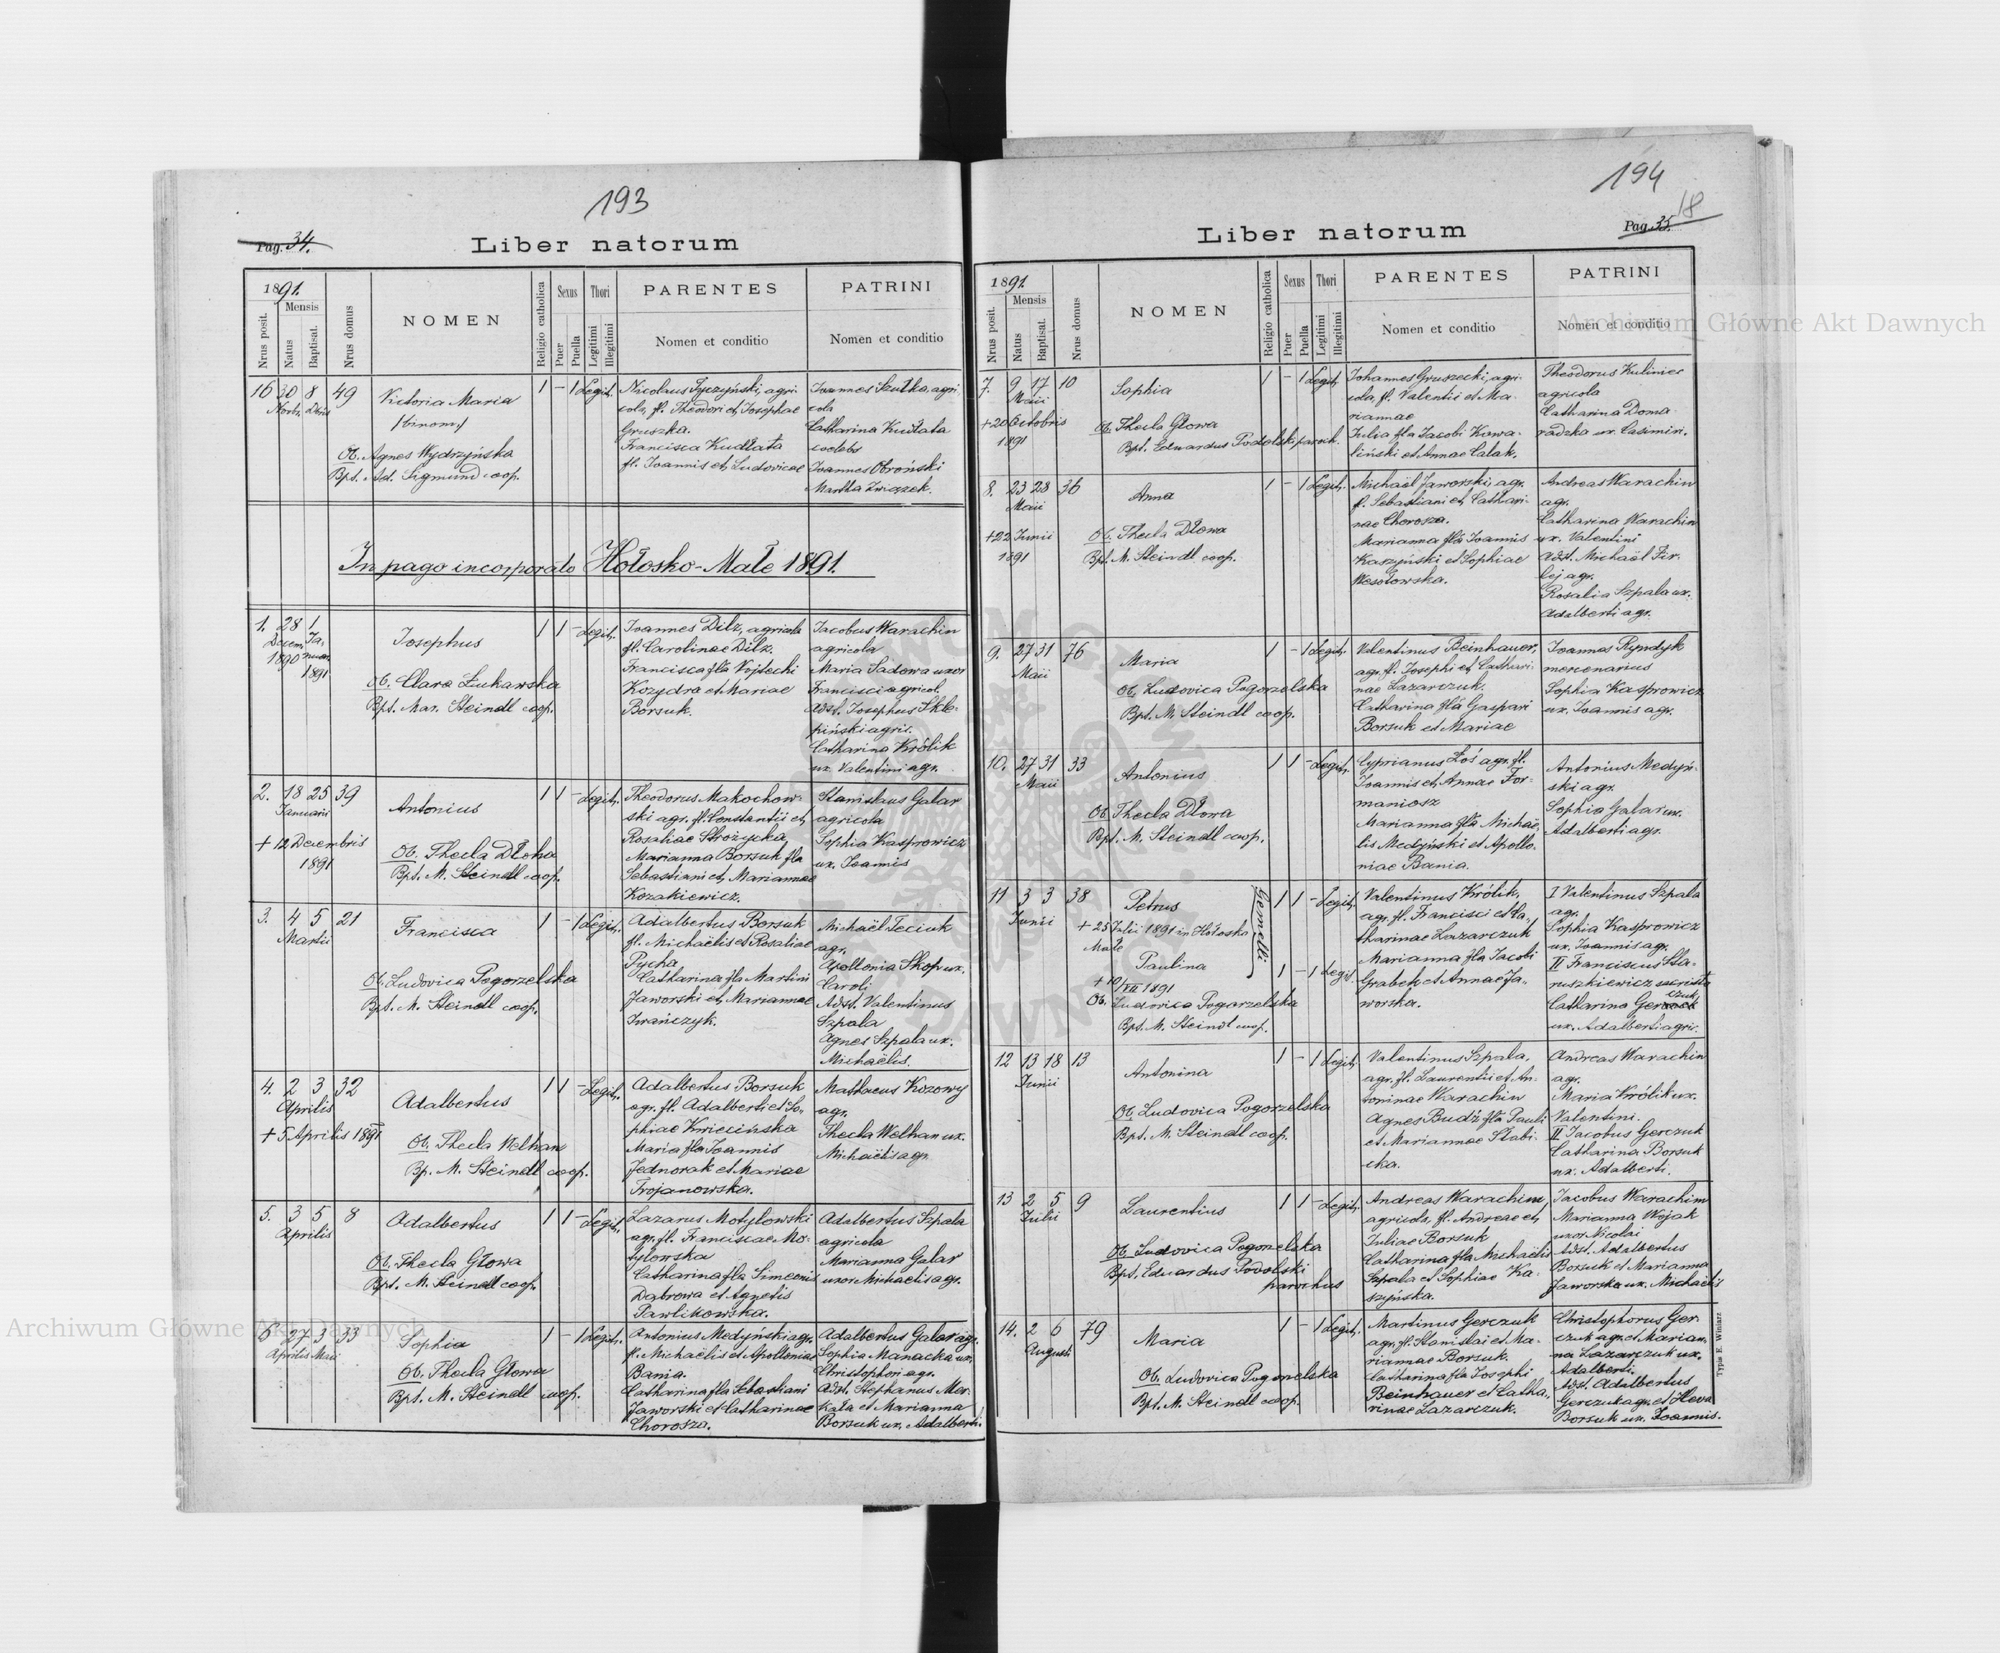 193
Pag. 34.
Liber natorum
1891.
Mensis
Nrus posit.
Natus
Baptisat.
Nrus domus
NOMEN
Religio catholica
Sexus
Puer
Puella
Thori
Legitimi
Illegitimi
PARENTES
Nomen et conditio
PATRINI
Nomen et conditio
16 30 8 49
Victoria Maria
/binom/
Ob. Agnes Wydrzyńska
Bpt. Ad. Sigmund coop.
1 - 1 Legit.
Nicolaus Tyczyński, agri-
cola, fl. Theodori et Josephae
Gruszka.
Francisca Kudłata
fl. Joannis et Ludovicae
Joannes Szutka, agri-
cola
Catharina Kudłata
coelebs
Joannes Obroński
Martha Związek.
In pago incorporato Hołosko-Małe 1891.
1. 28 1
Decem. Ja-
1890 nuar.
1891
Josephus
Ob. Clara Żukawska
Bpt. Mar. Steindl coop.
1 1 - Legit.
Joannes Dilz, agricola
fl. Carolinae Dilz.
Francisca fla Wojtechi
Kozydra et Mariae
Borsuk.
Jacobus Warachin
agricola
Maria Sadowa uxor
Francisci agricol.
Adst. Josephus Skle-
piński agric.
Catharina Królik
ux. Valentini agr.
2. 18 25 39
Januarii
+ 12 Decembris
1891
Antonius
Ob. Thecla Dłoha
Bpt. M. Steindl coop.
1 1 - Legit.
Theodorus Makochow-
ski agr. fl. Constantii et
Rosaliae Strożycka
Marianna Borsuk fla
Sebastiani et Mariannae
Kozakiewicz.
Stanislaus Galar
agricola
Sophia Kasprowicz
ux. Joannis
3. 4 5 21
Martii
Francisca
Ob. Ludovica Pogorzelska
Bpt. M. Steindl coop.
1 - 1 Legit.
Adalbertus Borsuk
fl. Michaëlis et Rosaliae
Pycha
Catharina fla Martini
Jaworski et Mariannae
Iwańczyk.
Michaël Teciuk
agr.
Apollonia Skop ux.
Caroli
Adst. Valentinus
Szpala
Agnes Szpala ux.
Michaëlis.
4. 2 3 32
Aprilis
+ 5 Aprilis 1891
Adalbertus
Ob. Thecla Welhan
Bp. M. Steindl coop.
1 1 - Legit.
Adalbertus Borsuk
agr. fl. Adalberti et So-
phiae Kwiecińska
Maria fla Joannis
Jednorak et Mariae
Trojanowska.
Mathaeus Kozowy
agr.
Thecla Welhan ux.
Michaëlis agr.
5. 3 5 8
Aprilis
Adalbertus
Ob. Thecla Głowa
Bpt. M. Steindl coop.
1 1 - Legit.
Lazarus Motylowski
agr. fl. Franciscae Mo-
tylowska
Catharina fla Simeonis
Dąbrowa et Agnetis
Pawlikowska.
Adalbertus Szpala
agricola
Marianna Galar
uxor Michaelis agr.
6 27 3 33
Aprilis Maii
Sophia
Ob. Thecla Głowa
Bpt. M. Steindl coop.
1 - 1 Legit.
Antonius Medyński agr.
fl. Michaëlis et Apolloniae
Bania.
Catharina fla Sebastiani
Jaworski et Catharinae
Chorosza.
Adalbertus Galar agr.
Sophia Manacka ux.
Christophori agr.
Adst. Stephanus Mer-
kata et Marianna
Borsuk ux. Adalberti
194
18
Pag. 35.
Liber natorum
1891.
Mensis
Nrus posit.
Natus
Baptisat.
Nrus domus
NOMEN
Religio catholica
Sexus
Puer
Puella
Thori
Legitimi
Illegitimi
PARENTES
Nomen et conditio
PATRINI
Nomen et conditio
7. 9 17 10
Maii
+ 20 Octobris
1891
Sophia
Ob. Thecla Głowa
Bpt. Eduardus Podolski paroch.
1 - 1 Legit.
Johannes Gruszecki, agri-
cola, fl. Valentii et Ma-
riannae
Julia fla Jacobi Kowa-
liński et Annae Calak.
Theodorus Kulinicz
agricola
Catharina Doma-
radzka ux. Casimiri.
8. 23 28 36
Maii
+ 22 Junii
1891
Anna
Ob. Thecla Dłowa
Bpt. M. Steindl coop.
1 - 1 Legit.
Michaël Jaworski, agr.
fl. Sebastiani et Cathari-
nae Chorosza.
Marianna fla Joannis
Kaszyński et Sophiae
Wesołowska.
Andreas Warachin
agr.
Catharina Warachin
ux. Valentini
Adst. Michaël Fir-
lej agr.
Rosalia Szpala ux.
Adalberti agr.
9. 27 31 76
Maii
Maria
Ob. Ludovica Pogorzelska
Bpt. M. Steindl coop.
1 - 1 Legit.
Valentinus Beinhauer,
agr. fl. Josephi et Cathari-
nae Lazarczuk.
Catharina fla Gaspari
Borsuk et Mariae
Joannes Rypdyk
mercenarius
Sophia Kasprowicz
ux. Joannis agr.
10. 27 31 33
Maii
Antonius
Ob. Thecla Dłowa
Bpt. M. Steindl coop.
1 1 - Legit.
Cyprianus Łoś agr. fl.
Joannis et Annae For-
maniosz
Marianna fla Michaë-
lis Medyński et Apollo-
niae Bania.
Antonius Medyń-
ski agr.
Sophia Galar ux.
Adalberti agr.
11 3 3 38
Junii
Petrus
+ 25 Julii 1891 in Hołosko
Małe
Paulina
+ 10/VII 1891
Ob. Ludovica Pogorzelska
Bpt. M. Steindl coop.
Gemelli
1 1 - Legit.
1 - 1 Legit.
Valentinus Królik,
agr. fl. Francisci et Ca-
tharinae Lazarczuk
Marianna fla Jacobi
Grabek et Annae Ja-
worska.
I Valentinus Szpala
agr.
Sophia Kasprowicz
ux. Joannis agr.
II Franciscus Sta-
ruszkiewicz sacrista
czuk
Catharina Ger
ux. Adalberti agric.
12 13 18 13
Junii
Antonina
Ob. Ludovica Pogorzelska
Bpt. M. Steindl coop.
1 - 1 Legit.
Valentinus Szpala,
agr. fl. Laurentii et An-
toninae Warachin
Agnes Budź fla Pauli
et Mariannae Słabi-
cka.
Andreas Warachin
agr.
Maria Królik ux.
Valentini.
II Jacobus Gerczuk
Catharina Borsuk
ux. Adalberti.
13 2 5 9
Julii
Laurentius
Ob. Ludovica Pogorzelska
Bpt. Eduardus Podolski
parochus
1 1 - Legit.
Andreas Warachim,
agricola, fl. Andreae et
Juliae Borsuk
Catharina fla Michaëlis
Szpala et Sophiae Ka-
szyńska.
Jacobus Warachim
Marianna Wojak
uxor Nicolai
Adst. Adalbertus
Borsuk et Marianna
Jaworska ux. Michaëlis
14. 2 6 79
Augusti
Maria
Ob. Ludovica Pogorzelska
Bpt. M. Steindl coop.
1 - 1 Legit.
Martinus Gerczuk
agr. fl. Stanislai et Ma-
riannae Borsuk.
Catharina fla Josephi
Beinhauer et Catha-
rinae Lazarczuk.
Christophorus Ger-
czuk agr. et Marian-
na Lazarczuk ux.
Adalberti.
Adst. Adalbertus
Gerczuk agr. et Heva
Borsuk ux. Joannis.
Typis E. Winiarz
Archiwum Główne Akt Dawnych
Archiwum Główne Akt Dawnych